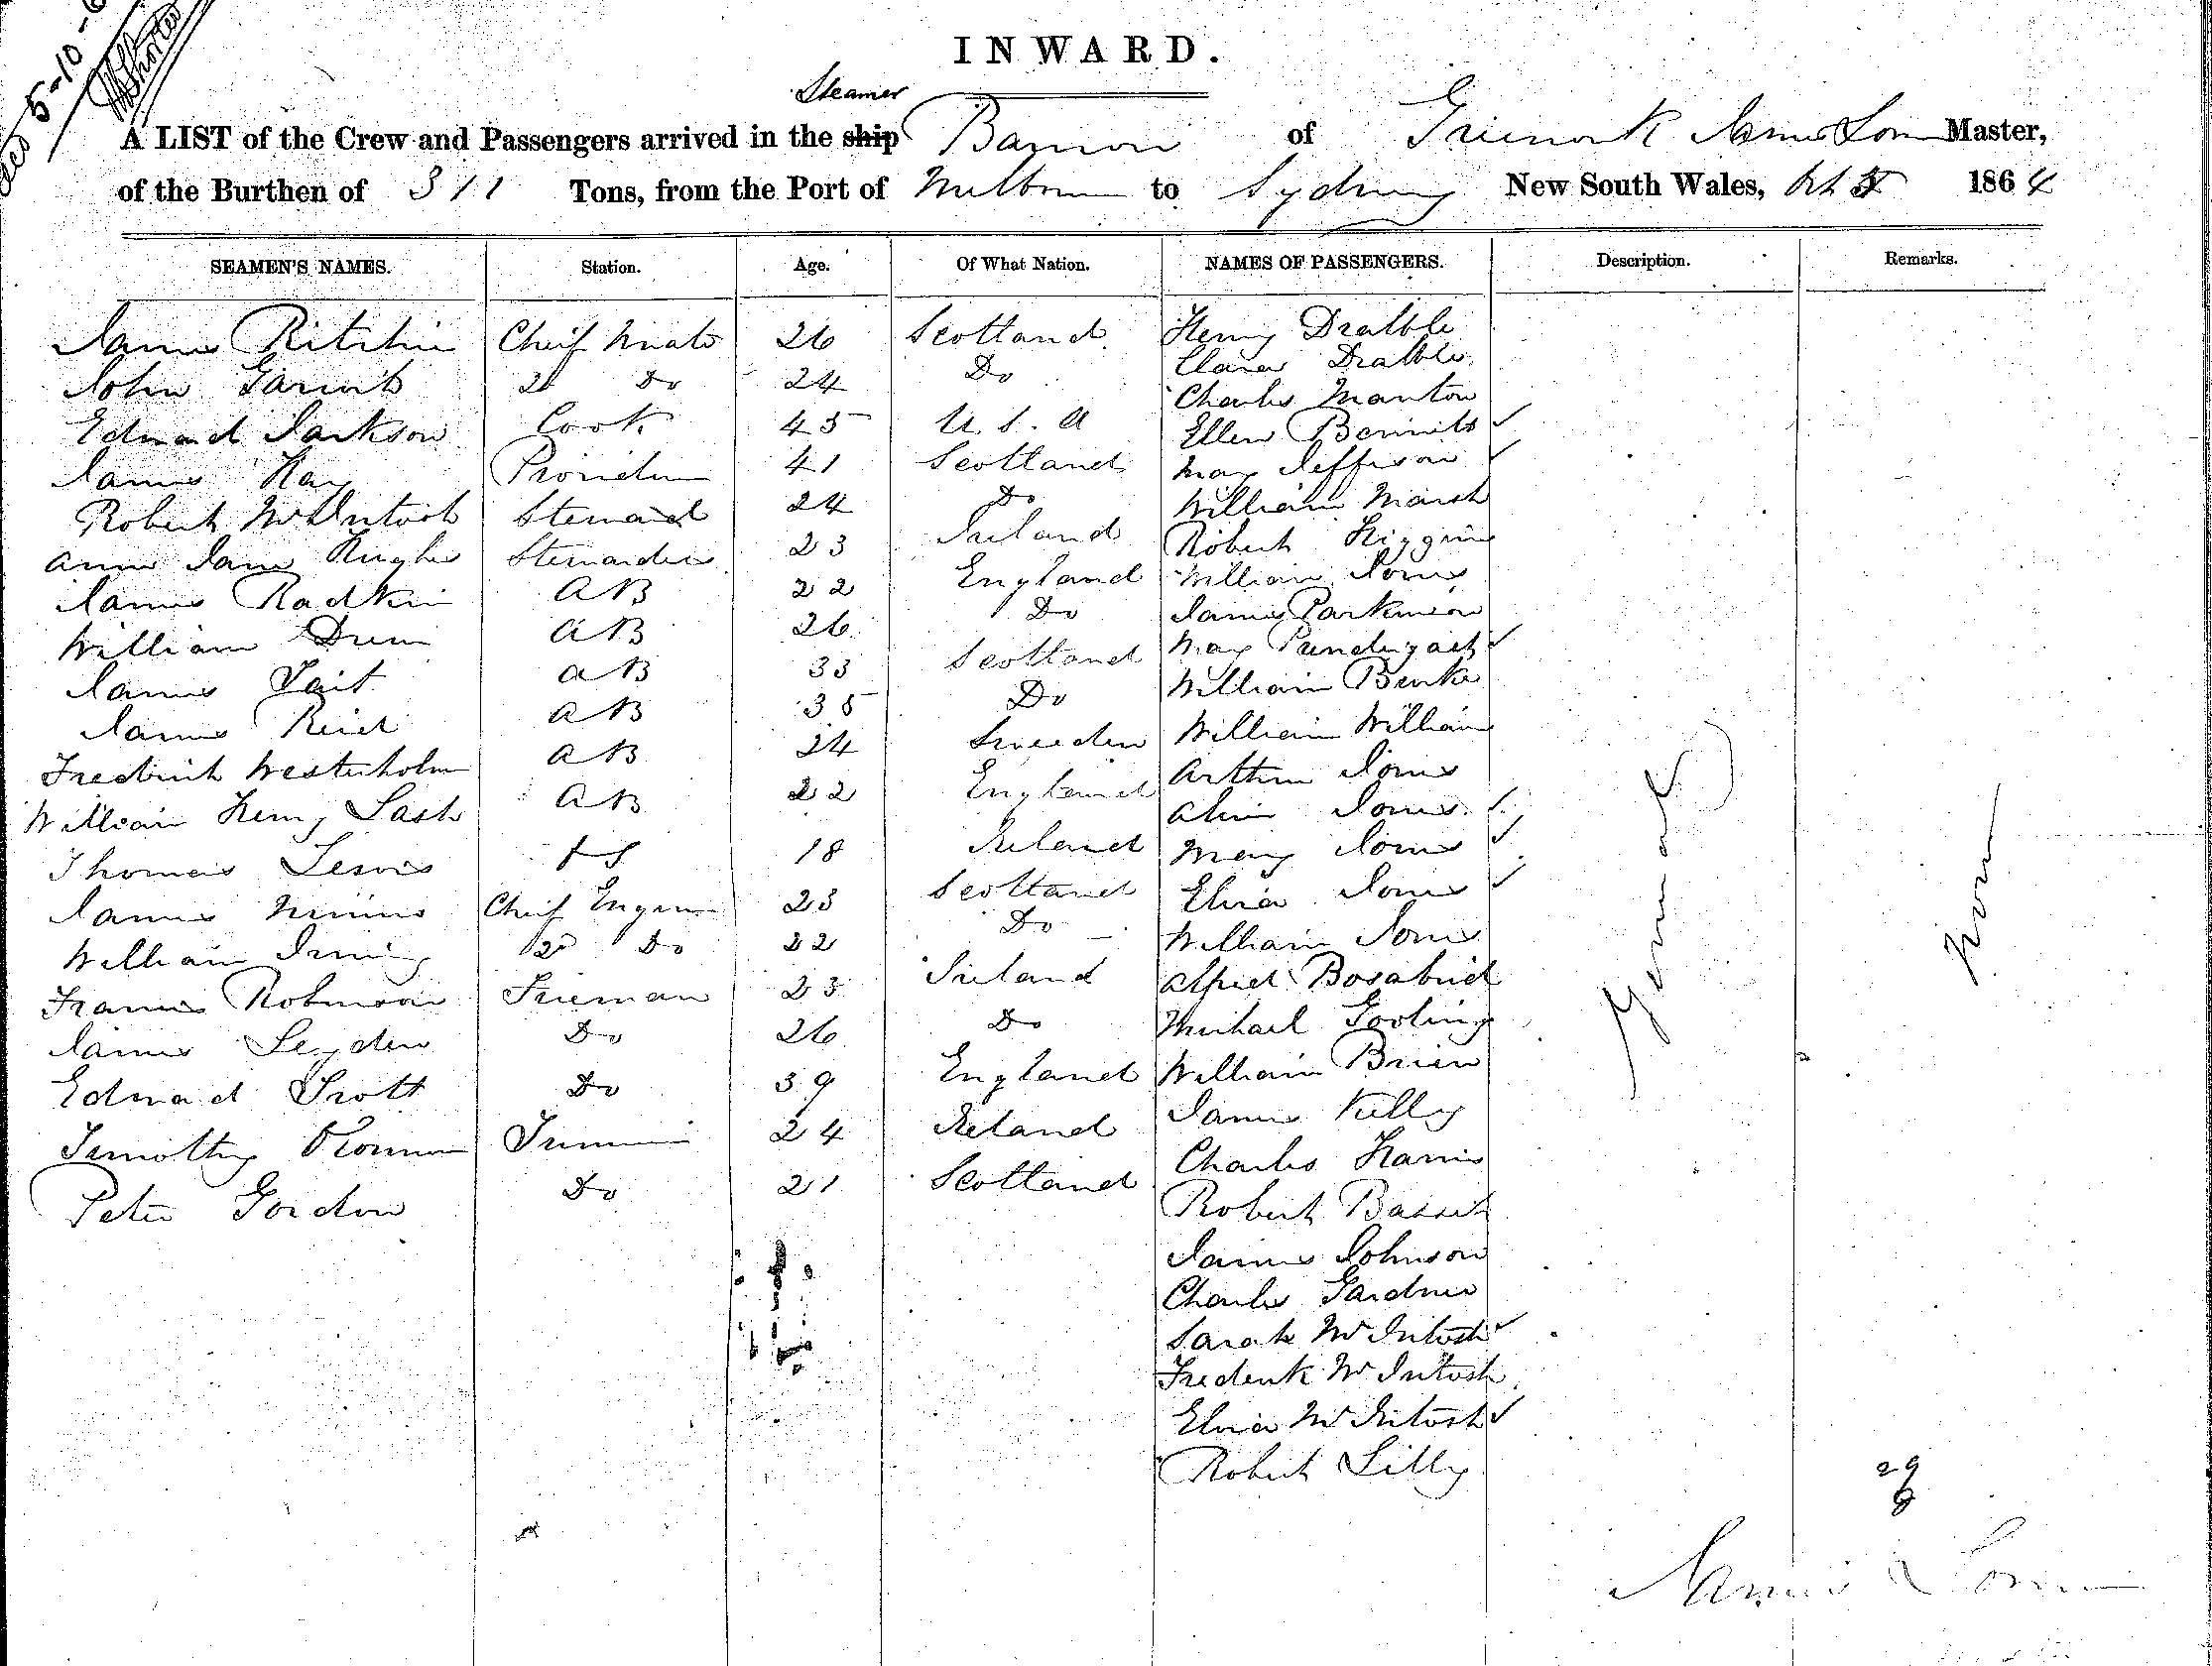 5-10-6
INWARD.
Steamer
A LIST of the Crew and Passengers arrived in the ship Barwon of Greenock James Lorn Master,
of the Burthen of 311 Tons, from the Port of Melbourne to Sydney New South Wales, Oct 5 1864
SEAMEN'S NAMES. Station. Age. Of What Nation. NAMES OF PASSENGERS. Description. Remarks.
James Ritchie Cheif Mate 26 Scotland Henry Drabble
John 2d Do 24 Do Clara Drabble
Edward Jackson Cook 45 U.S.A Charles Manton
James Hay Providor 41 Scotland Ellen Bennett
Robert McIntosh Steward 24 Do Mary Jefferson
Anne Jane Hughes Stewardess 23 Ireland William Marsh
James Radkin AB 22 England Robert Higgins
William AB 26 Do William Jones
James Tait AB 33 Scotland James Parkinson
James Reid AB 35 Do Mary Prendergast
Frederick Westerholm AB 24 Sweeden William Burke
William Henry Lash AB 22 England William William
Thomas Lewis 18 Ireland Arthur Jones
James Cheif Engineer 23 Scotland Jones
William Irving 2d Do 22 Do Mary Jones
Francis Robinson Fireman 23 Ireland Eliza Jones
James Leyden Do 26 Do William Jones
Edward Scott Do 39 England Alfred
Timothy OConnor Trimmer 24 Ireland Michael
Peter Gordon Do 21 Scotland William Brien
James Kelly
Charles Harris
Robert Basset
James Johnson
Charles Gardner
Sarah McIntosh
Frederick McIntosh
Eliza McIntosh
Robert Lilly
None
29
8
James Lorn